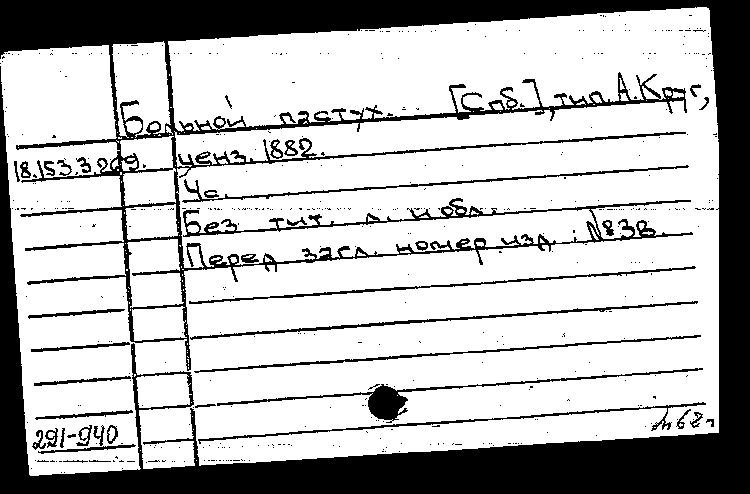 Больной пастух... [Спб.], тип. А. Круг,
18.153.3.269. ценз. 1882.
4 с.
Без тит. л. и обл.
Перед загл. номер изд.: №3в.
291-940